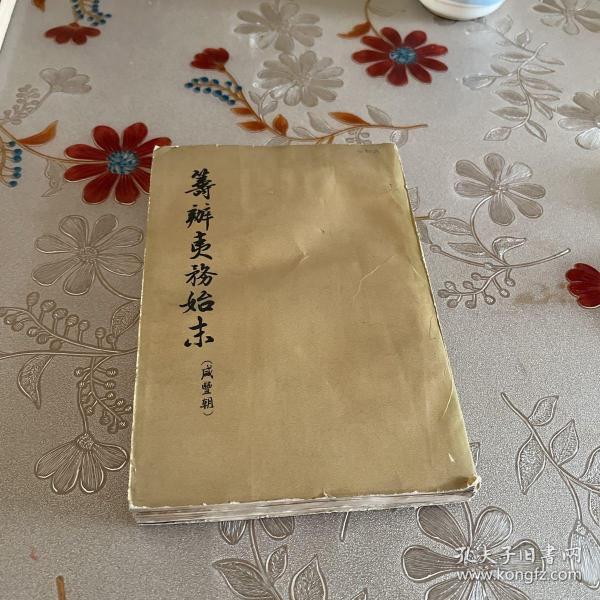 籌辦夷務始末
(咸豐朝)
孔夫子旧书网
www.kongfz.com